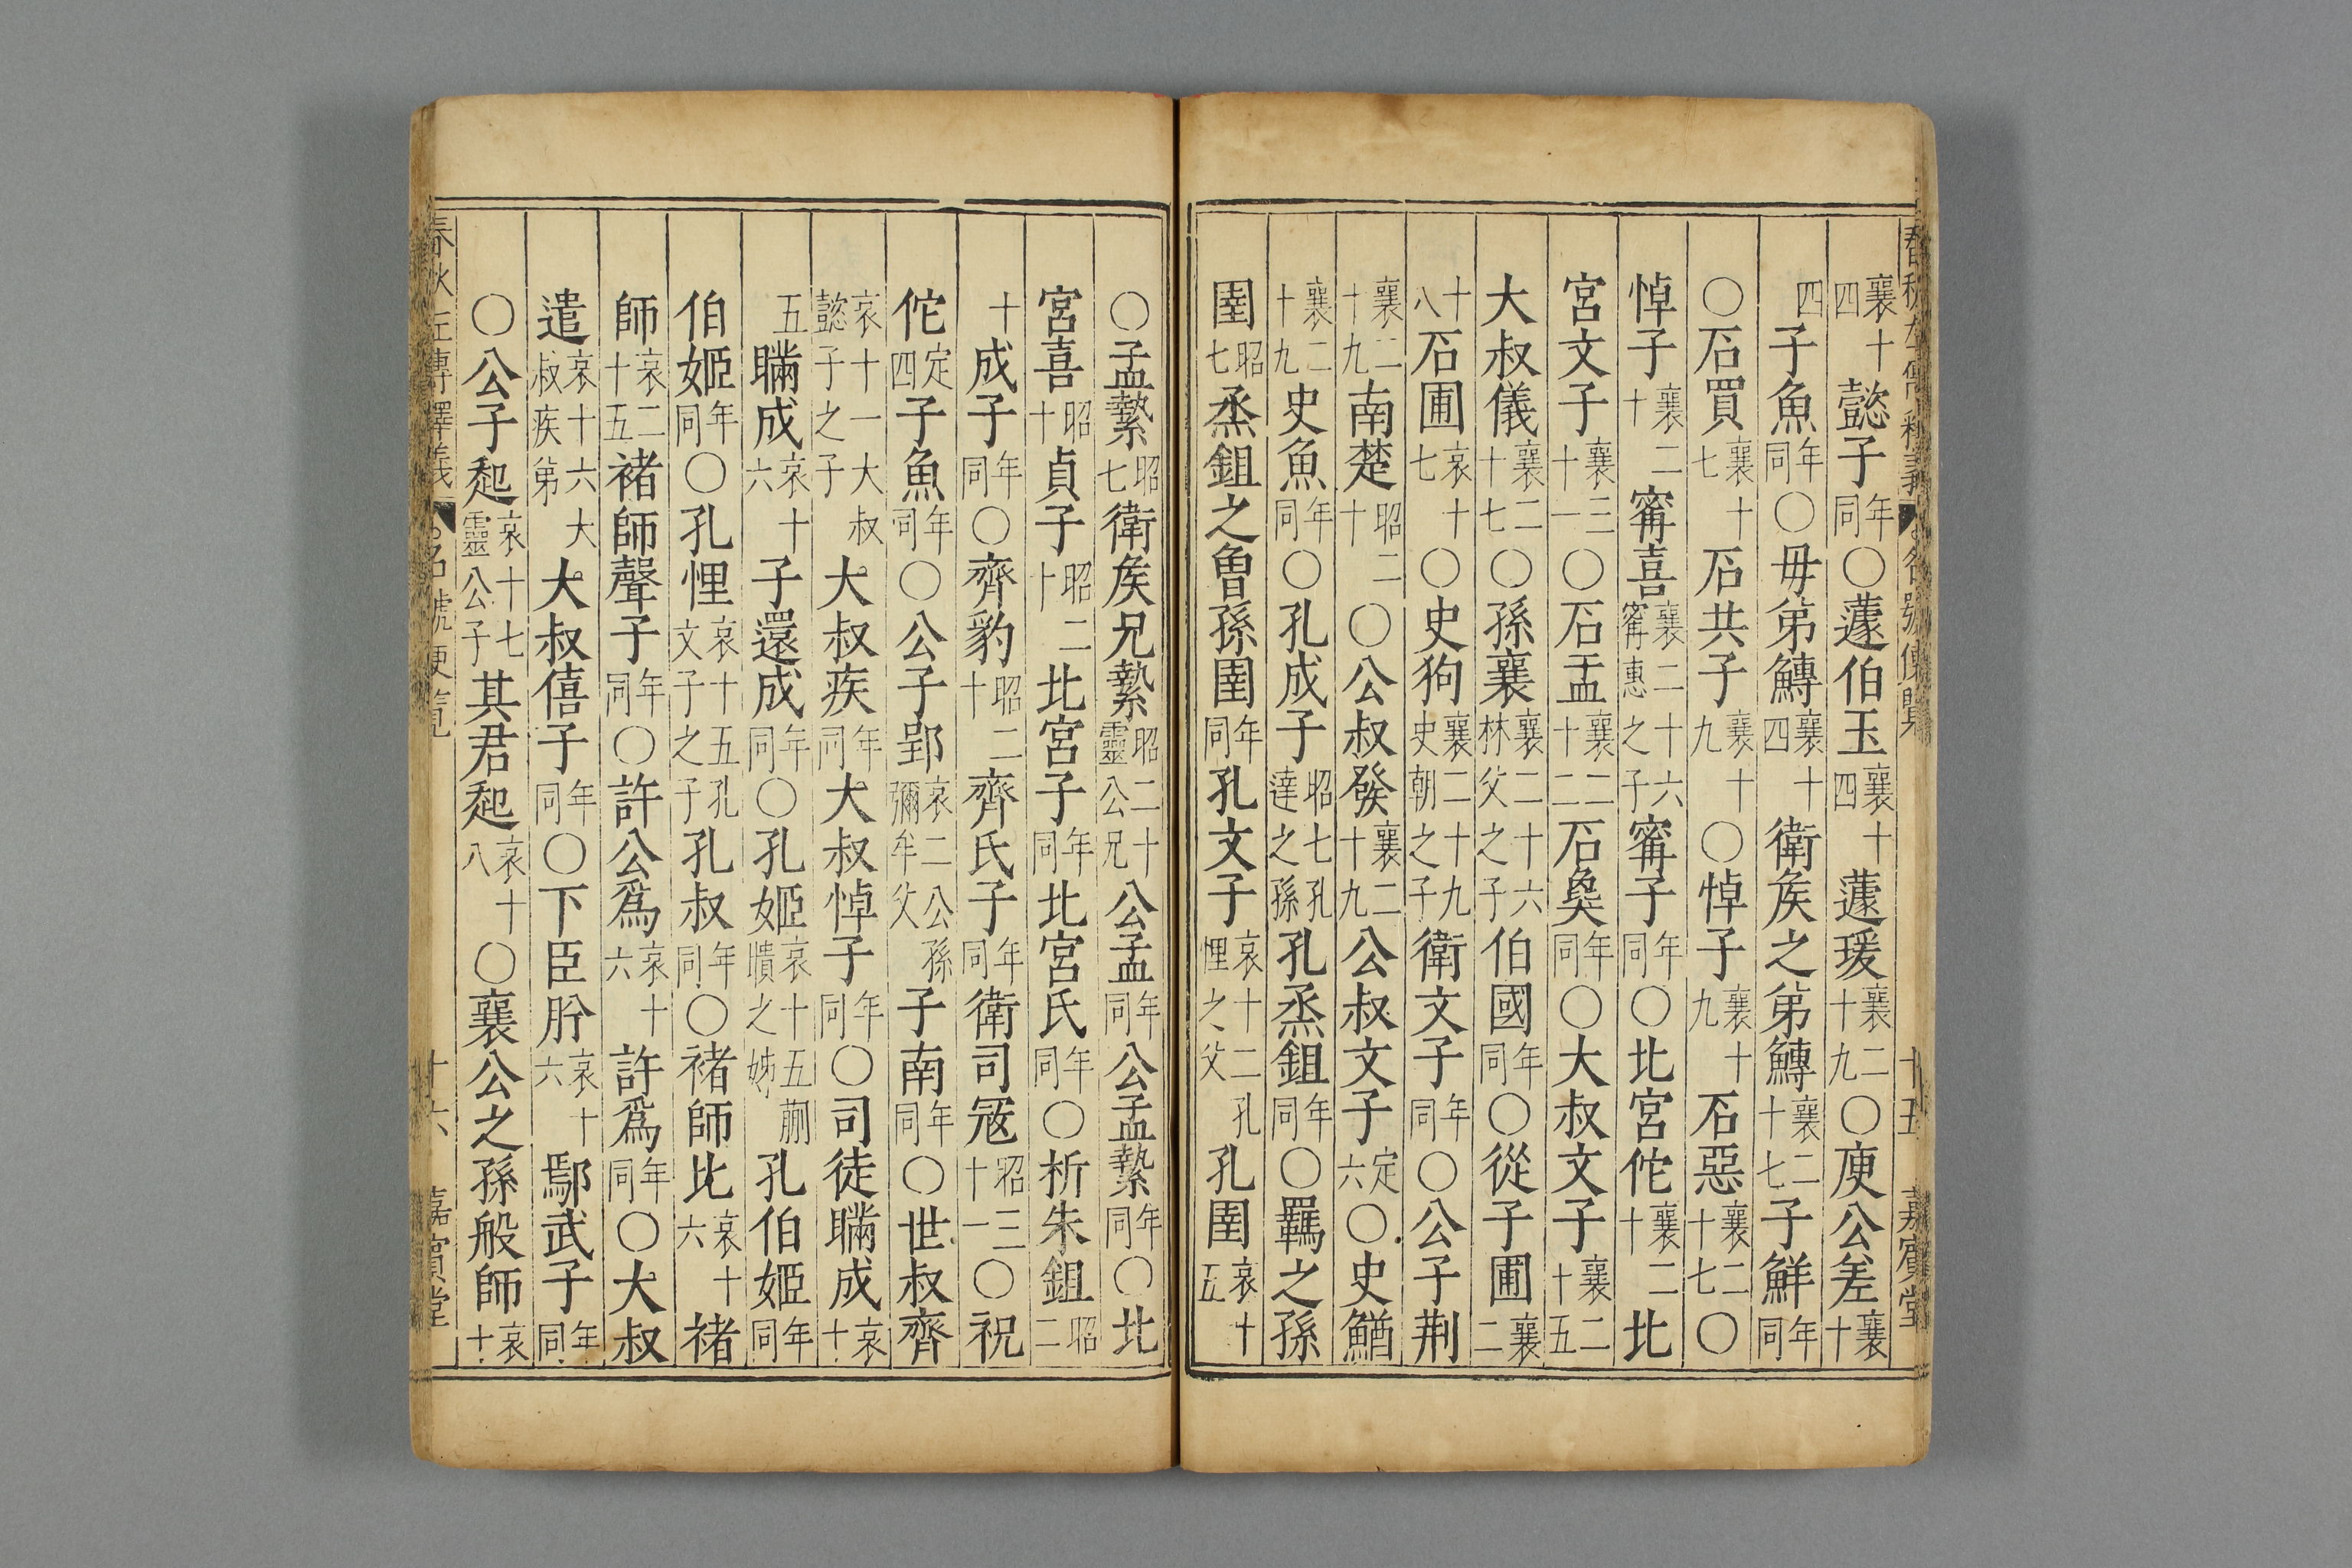 襄十四懿子同年〇蘧伯玉襄十四蘧瑗襄二十九〇庾公差襄十
四子魚同年〇母弟鱄襄十四衛侯之弟鱄襄二十七子鮮同年
〇石買襄十七石共子襄十九〇悼子襄十九石惡襄二十七〇
悼子襄二十甯喜襄二十六甯惠之子甯子同年〇北宮佗襄二十北
宮文子襄三十一〇石盂襄二十二石㚟同年〇大叔文子襄二十五
大叔儀襄二十七〇孫襄襄二十六林父之子伯國同年〇從子圃襄二
十八石圃哀十七〇史狗襄二十九史朝之子衛文子同年〇公子荆
襄二十九南楚昭二十〇公叔發襄二十九公叔文子定六〇史鰌
襄二十九史魚同年〇孔成子昭七孔達之孫孔烝鉏同年〇羈之孫
圉昭七烝鉏之曾孫圉同年孔文子哀十二孔悝之父孔圉哀十五
春秋左傳釋義 名號便覽 十五 嘉賓堂
〇孟縶昭七衛侯兄縶昭二十靈公兄公孟同年公孟縶同年〇北
宮喜昭十貞子昭二十北宮子同年北宮氏同年〇析朱鉏昭二
十成子同年〇齊豹昭二十齊氏子同年衛司冦昭三十一〇祝
佗定四子魚同年〇公子郢哀二公孫彌牟父子南同年〇世叔齊
哀十一大叔懿子之子大叔疾同年大叔悼子同年〇司徒瞞成哀十
五瞞成哀十六子還成同年〇孔姬哀十五蒯聵之姊孔伯姬同年
伯姬同年〇孔悝哀十五孔文子之子孔叔同年〇褚師比哀十六褚
師哀二十五褚師聲子同年〇許公爲哀十六許爲同年〇大叔
遣哀十六大叔疾弟大叔僖子同年〇下臣肸哀十六鄢武子同年
〇公子起哀十七靈公子其君起哀十八〇襄公之孫般師哀十
春秋左傳釋義 名號便覽 十六 嘉賓堂